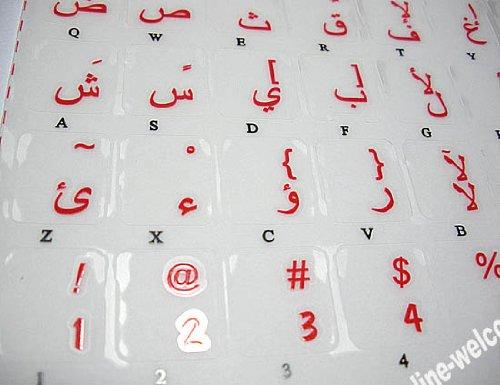 ض ص ث ق ف غ
Q W E R T Y
َ ً ] [ لأ
ش س ي ب ل
A S D F G
~ ْ } { لآ
ئ ء ؤ ر لا
Z X C V B
! @ # $ %
1 2 3 4
1 2 3 4
line-welco